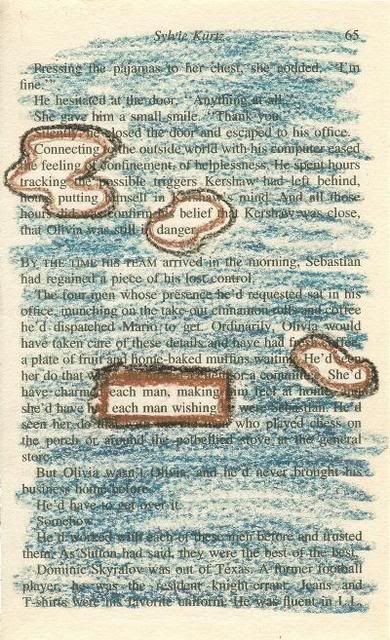 Sylvie Kurtz 65
Pressing the pajamas to her chest, she nodded. "I'm
fine."
He hesitated at the door. "Anything at all..."
She gave him a small smile. "Thank you."
closed the door and escaped to his office.
Connecting to the outside world with his computer eased
the feeling of confinement, of helplessness. He spent hours
tracking the possible triggers Kershaw had left behind,
hours putting himself in mind. And all those
hours did confirm belief that Kershaw was close,
that Olivia was still in danger.
BY THE TIME HIS TEAM arrived in the morning, Sebastian
had regained a piece of his lost control.
The four men whose presence he'd requested sat in his
office, munching on the take-out cinnamon rolls and coffee
he'd dispatched Mario to get. Ordinarily, Olivia would
have taken care of these details and have had fresh coffee,
a plate of fruit and home-baked muffins waiting. He'd seen
her do that for a committee. She'd
have charmed each man, making him feel at home and
she'd have each man wishing were Sebastian. He'd
seen her do that who played chess on
the porch or around the potbellied stove at the general
store.
But Olivia wasn't Olivia, and he'd never brought his
business home before.
He'd have to get over it.
Somehow.
He'd worked with each of these men before and trusted
them. As Sutton had said, they were the best of the best.
Dominic Skyralov was out of Texas. A former football
player, he was the resident knight-errant. Jeans and
T-shirts were his favorite uniform. He was fluent in